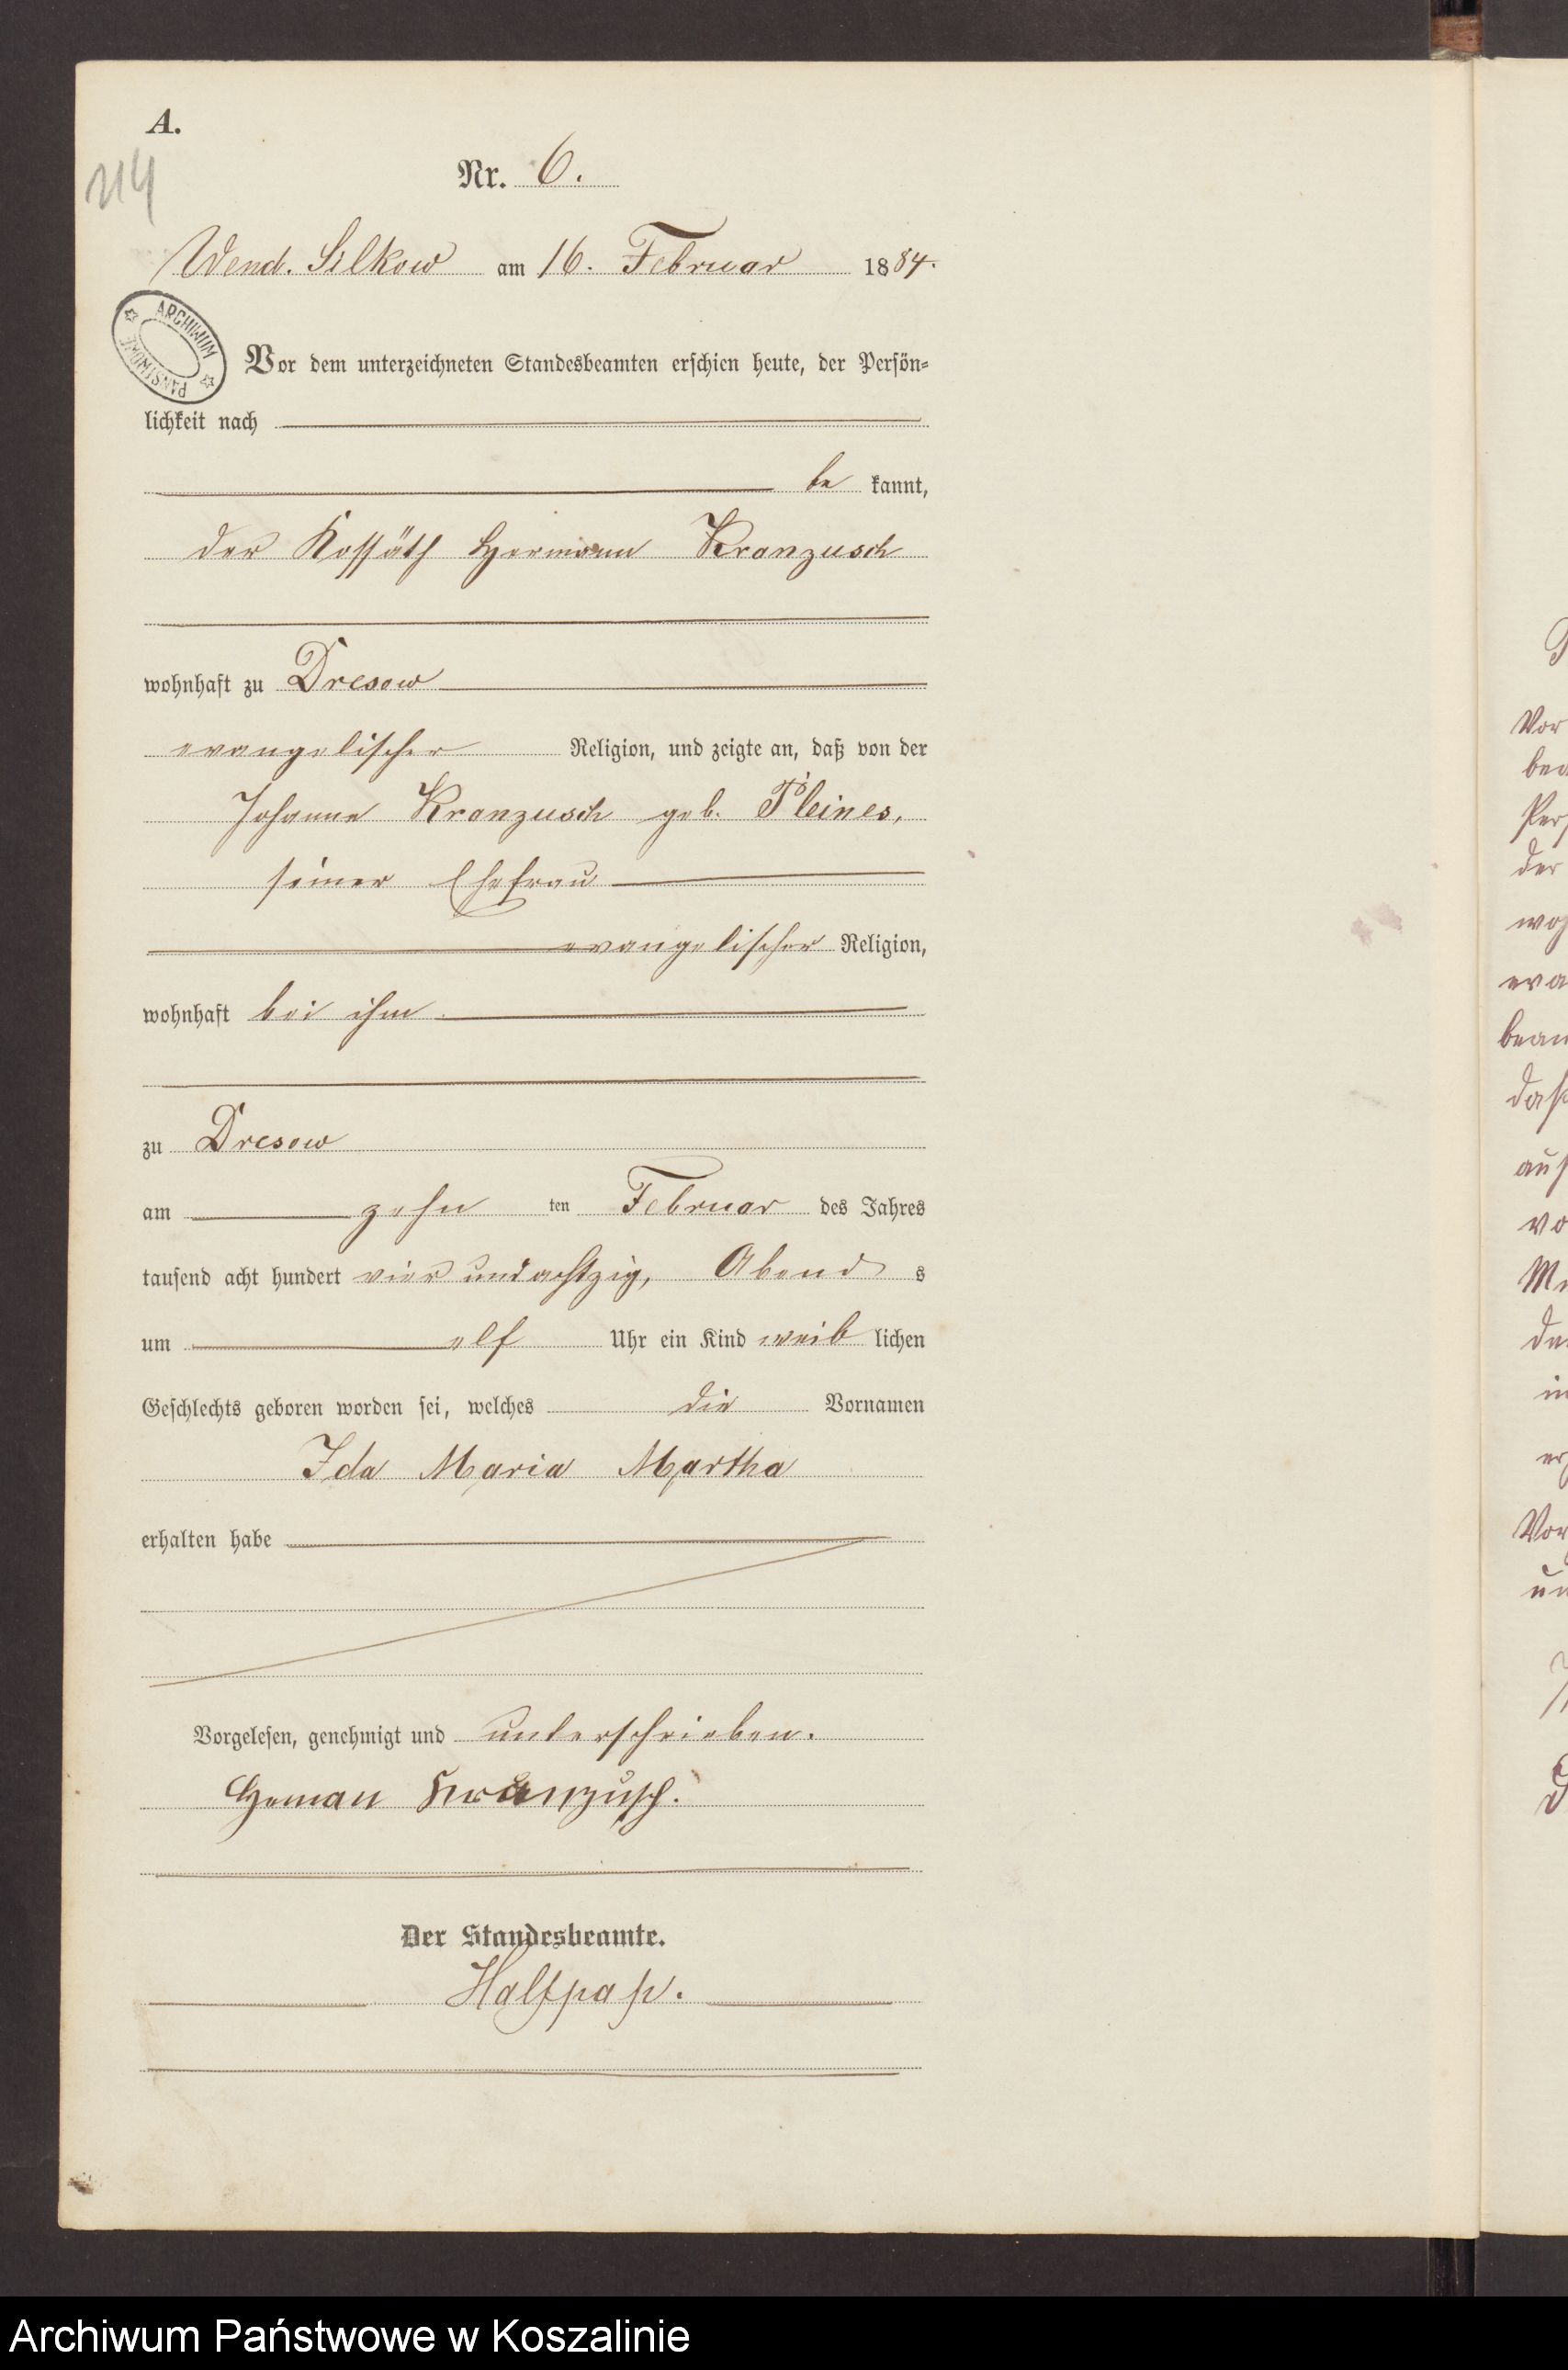 A.
114
Nr. 6.
Wend. Silkow am 16. Februar 1884.
ARCHIWUM PAŃSTWOWE
Vor dem unterzeichneten Standesbeamten erschien heute, der Persön-
lichkeit nach
be kannt,
der Kossäth Hermann Kranzusch
wohnhaft zu Dresow
evangelischer Religion, und zeigte an, daß von der
Johanne Kranzusch geb. Pleines,
seiner Ehefrau
evangelischer Religion,
wohnhaft bei ihm
zu Dresow
am zehn ten Februar des Jahres
tausend acht hundert vier und achtzig, Abend s
um elf Uhr ein Kind weib lichen
Geschlechts geboren worden sei, welches die Vornamen
Ida Maria Martha
erhalten habe
Vorgelesen, genehmigt und unterschrieben.
Heman Kranzusch.
Der Standesbeamte.
Halfpap.
Vor
Per
der
Archiwum Państwowe w Koszalinie